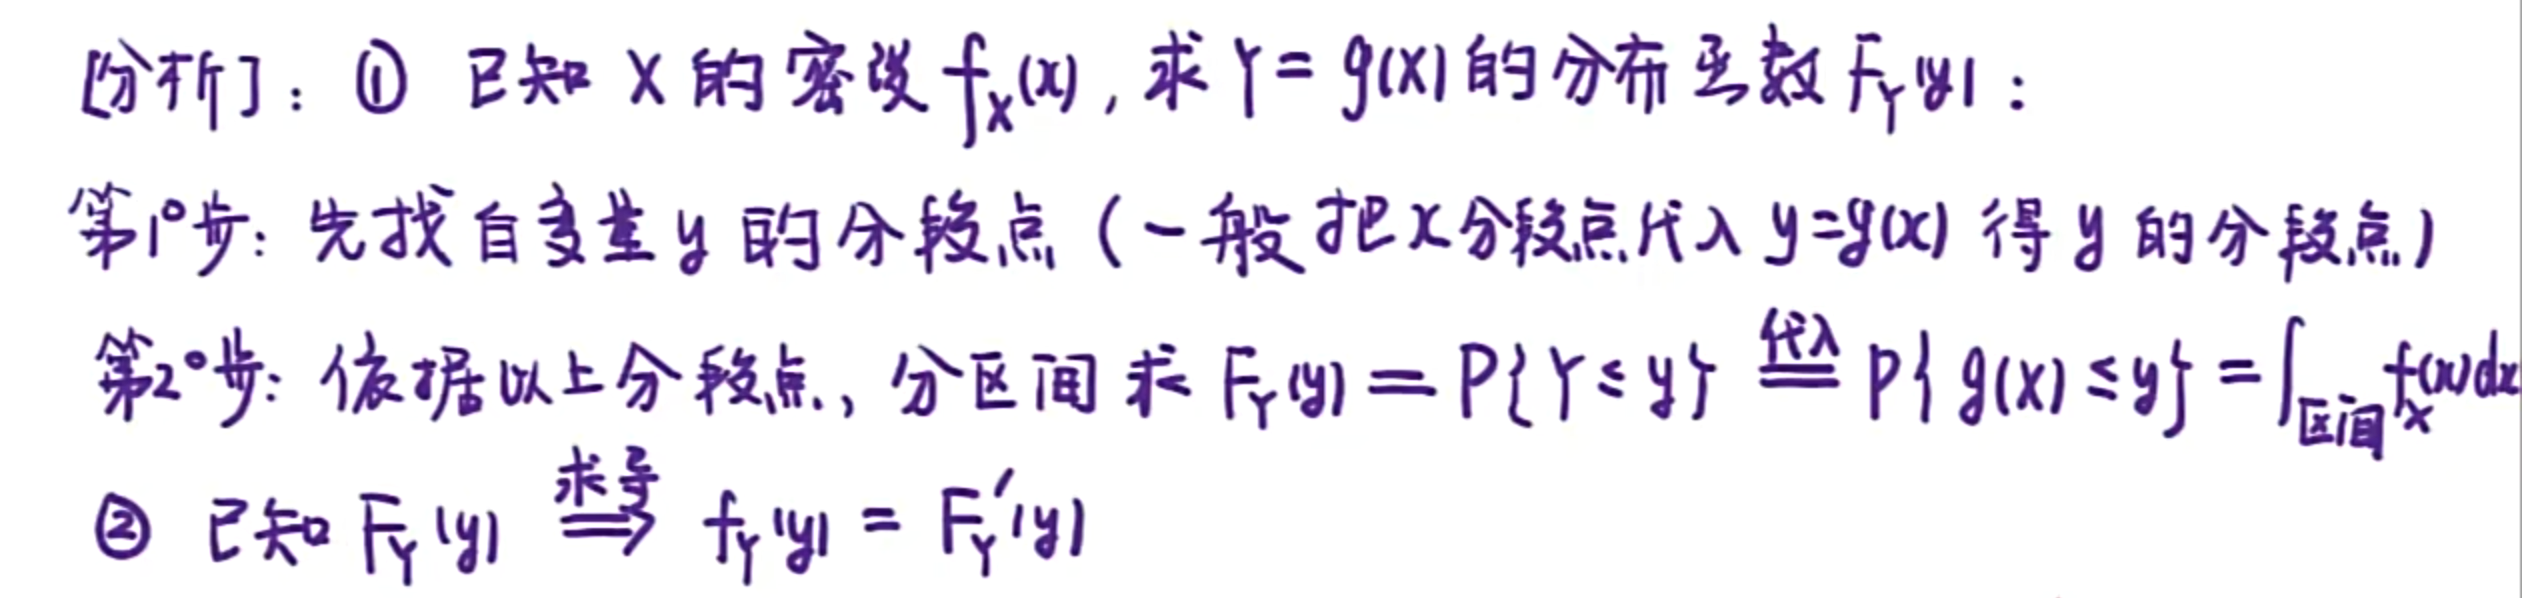 [分析]: ① 已知 X 的密度 f_X(x), 求 Y = g(X) 的分布函数 F_Y(y):
第1°步: 先找自变量 y 的分段点 (一般把 x 分段点代入 y=g(x) 得 y 的分段点)
第2°步: 依据以上分段点, 分区间求 F_Y(y) = P{Y ≤ y} \overset{代入}{=} P{g(X) ≤ y} = ∫_{区间} f_X(x)dx
② 已知 F_Y(y) \overset{求导}{⟹} f_Y(y) = F_Y'(y)